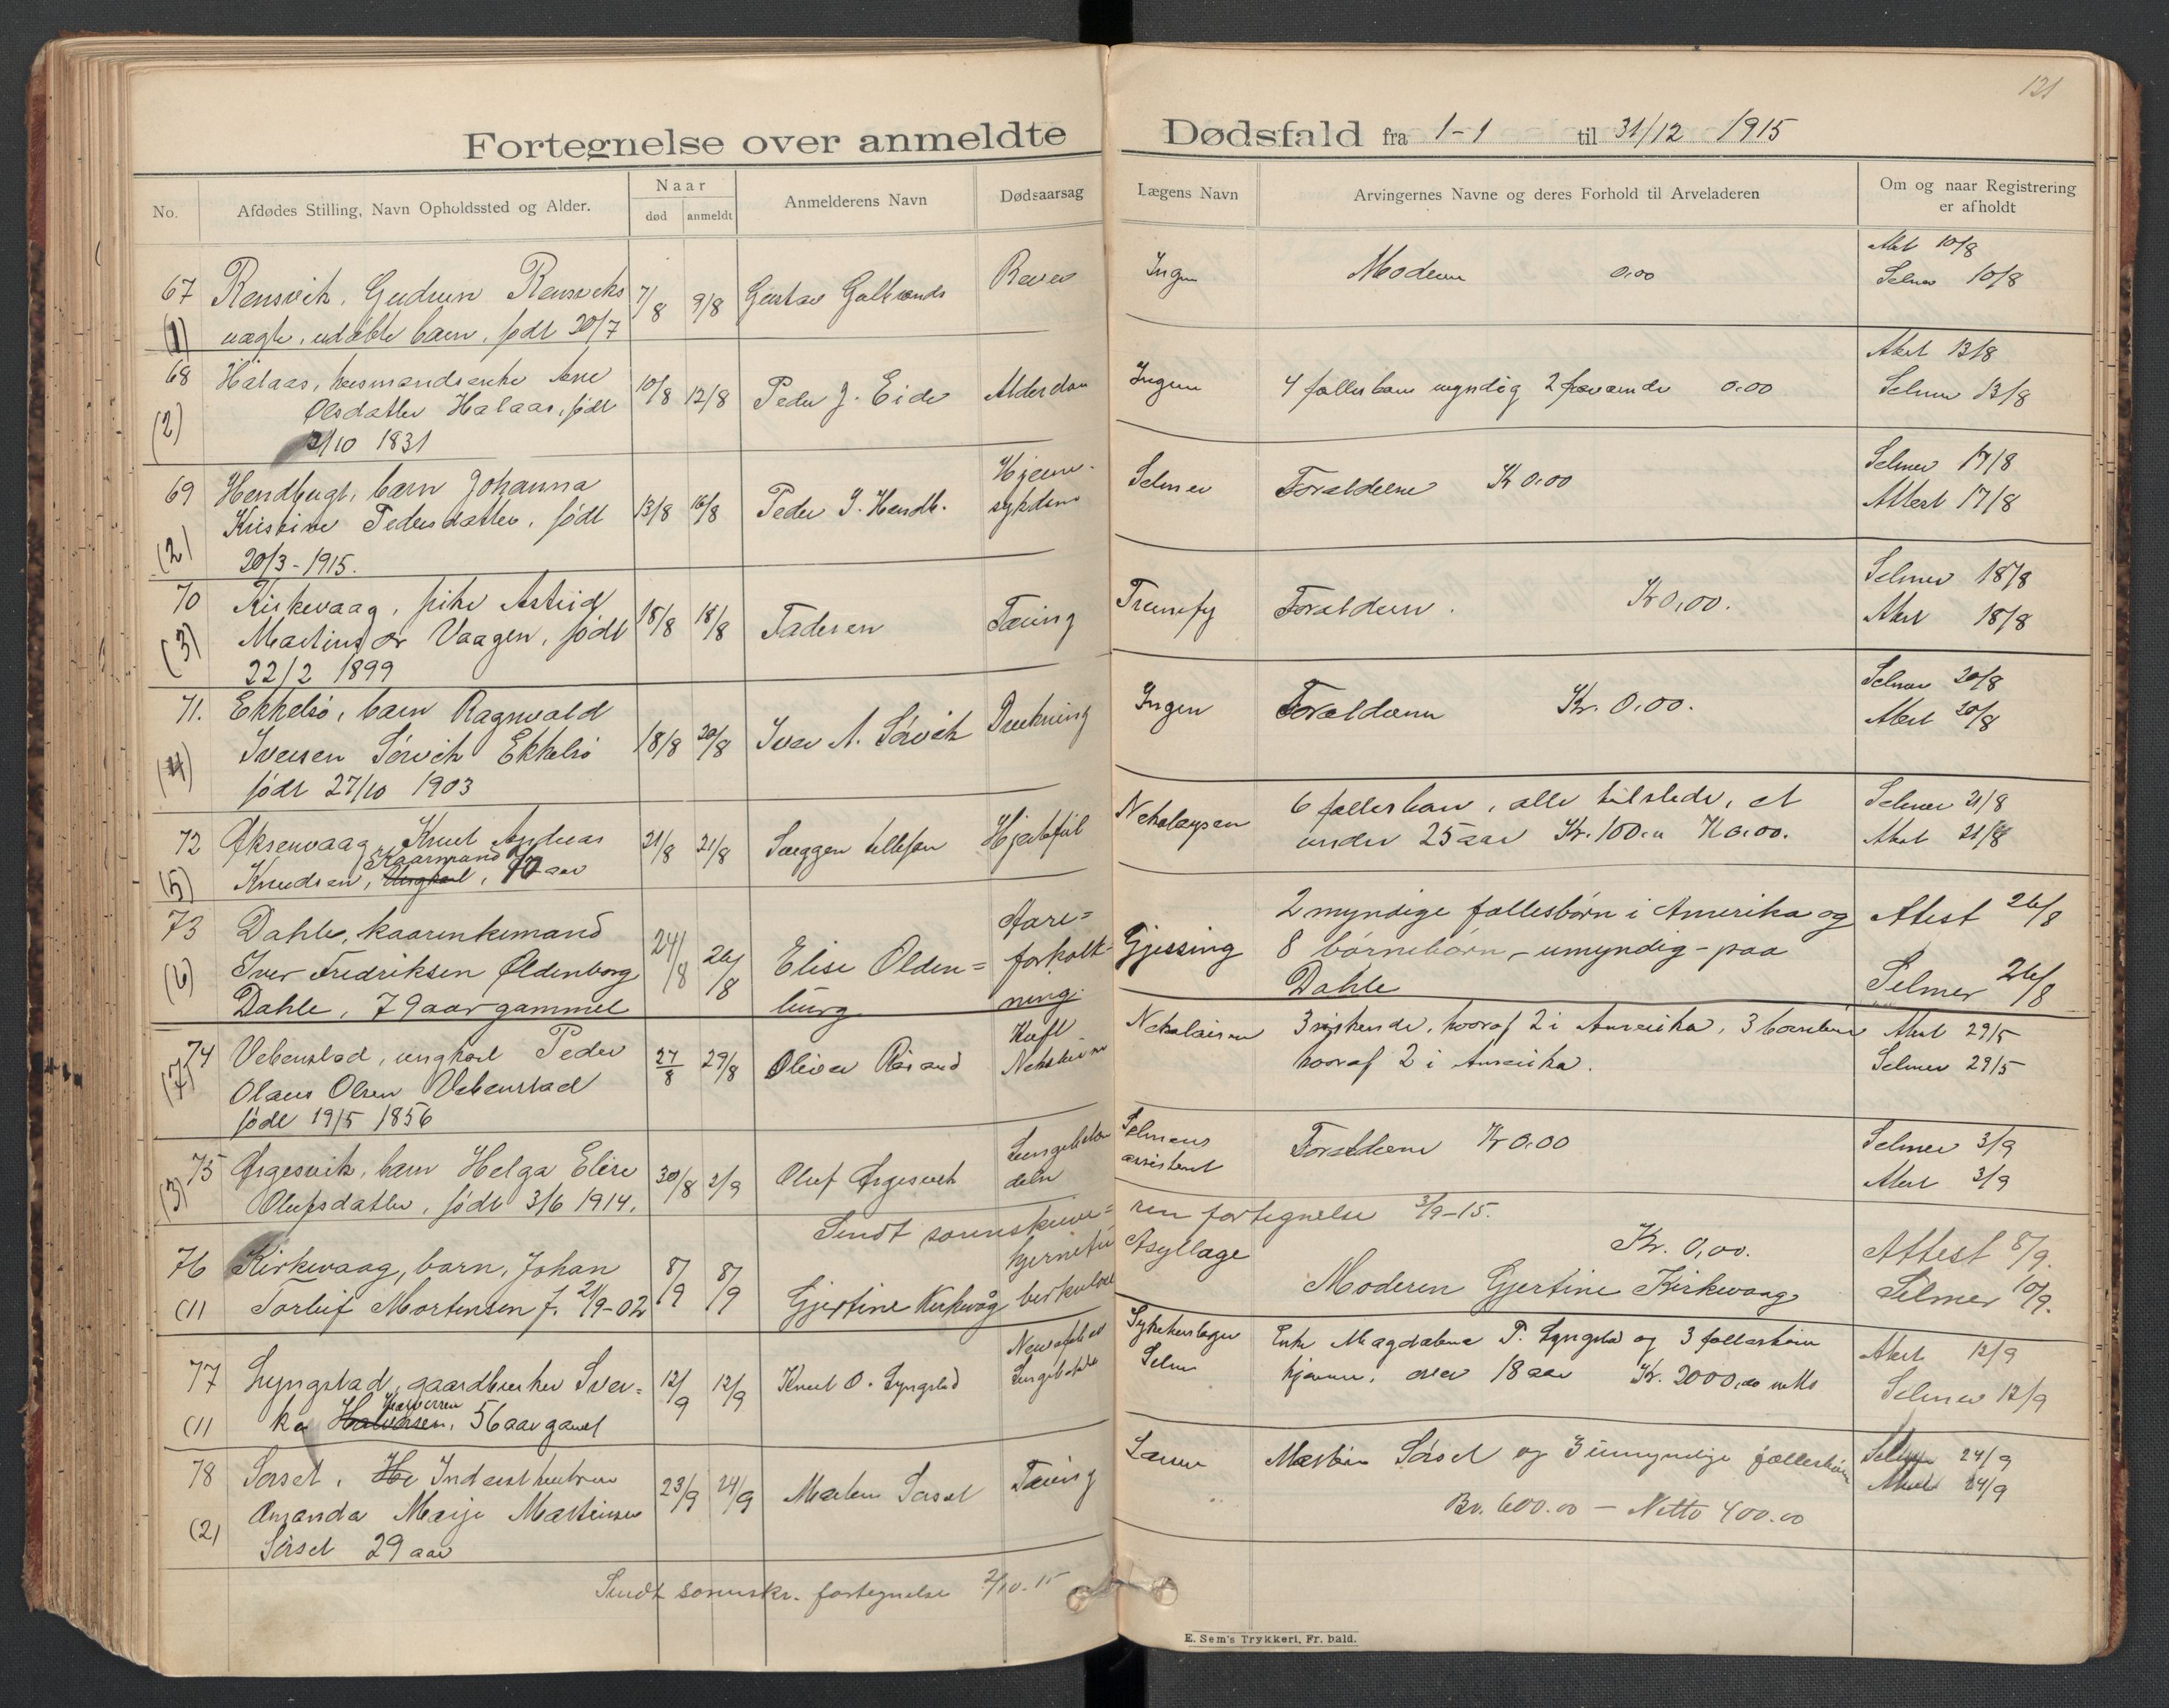 121
Fortegnelse over anmeldte Dødsfald fra 1-1 til 31/12 1915
No.
Afdødes Stilling, Navn Opholdssted og Alder.
Naar
død
anmeldt
Anmelderens Navn
Dødsaarsag
Lægens Navn
Arvingernes Navne og deres Forhold til Arveladeren
Om og naar Registrering
er afholdt
67 Rensvik, Gudrun Rensviks 7/8 9/8 Gustav Ingen 0.00 10/8
(1) barn, født 20/7 Selmer 10/8
68 Halaas, Ane 10/8 12/8 Peder J. Eide Ingen 4 myndig 2 0.00 Attest 13/8
(2) Olsdatter Halaas, født Selmer 13/8
2/10 1831
69 Hendbugt, barn Johanna 13/8 16/8 Peder J. Hendb. Hjerne- Selmer Forældrene Kr 0.00 Selmer 17/8
(2) Kristine Pedersdatter, født sykdom Attest 17/8
20/3-1915.
70 Kirkevaag, pike Astrid 15/8 18/8 Faderen Tæring Forældrene. Kr 0,00. Selmer 18/8
(3) Martinsdr Vaagen, født Attest 18/8
22/2 1899
71. Ekkelsø, barn Ragnvald 18/8 20/8 Iver A. Sørvik Drukning Ingen Forældrene Kr. 0.00. Selmer 20/8
(4) Iversen Sørvik Ekkelsø Attest 20/8
født 27/10 1903
72 Øksenvaag, Knut Andreas 21/8 21/8 Hjertefeil 6 fællesbarn, alle tilstede, et Selmer 21/8
Kaarmand
(5) Knudsen, aar under 25 aar Kr. 100.00 Attest 21/8
73 Dahle, kaarenkemand 24/8 26/8 Elise Olden= Aare= Gjessing 2 myndige fællesbørn i Amerika og Attest 26/8
(6) Iver Fredriksen Øldenborg burg forkalk- 8 børnebørn - umyndig - paa Selmer 26/8
Dahle, 79 aar gammel ning. Dahle
74 Vebenstad, ungkarl Peder 27/8 29/8 Oliver 3 søskende, hvoraf 2 i Amerika, 3 Attest 29/5
(7) Olaus Olsen Vebenstad hvoraf 2 i Amerika. Selmer 29/5
født 19/5 1856
75 Ørgesvik, barn Helga Elise 30/8 2/9 Oluf Ørgesvik Selmers Forældrene Kr 0.00 Selmer 3/9
(3) Olufsdatter, født 3/6 1914. assistent Attest 3/9
Sendt sorenskrive=ren fortegnelse 3/9-15.
76 Kirkevaag, barn, Johan 8/9 8/9 Gjertine Kirkvåg hjernetu berkulose Asyllæge Kr. 0,00. Attest 8/9.
(1) Torleif Mortensen f. 21/9-02 Moderen Gjertine Kirkevaag Selmer 10/9.
77 Lyngstad, gaardbruker Sver= 12/9 12/9 Knut O. Lyngstad Enke Magdalena P. Lyngstad og 3 fællesbørn Attest 12/9
(1) ke Halvorsen, 56 aar gaml Selmer hjemme, over 18 aar Kr. 2000,00 netto Selmer 12/9
78 Sørset, 23/9 24/9 Marten Sørset Tæring Martin Sørset og 3 umyndige fællesbørn Selmer 24/9
(2) Amanda Marje Martinsen Br. 600.00 - Netto 400.00 Attest 24/9
Sørset 29 aar
Sendt sorenskr. fortegnelse 2/10.15
E. Sem's Trykkeri, Fr. hald.